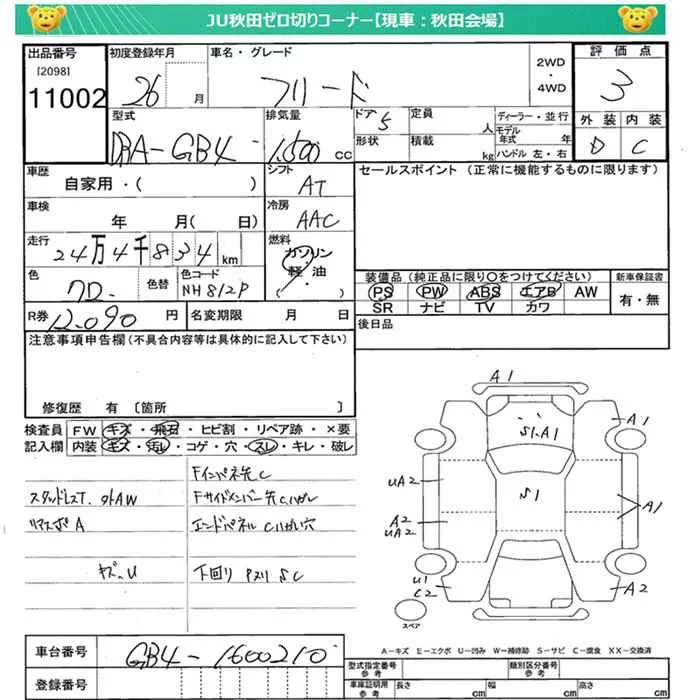 JU秋田ゼロ切りコーナー【現車：秋田会場】
出品番号 初度登録年月 車名・グレード 2WD・4WD 評価点
[2098]
11002 26 月 フリード 3
型式 排気量 ドア 5 定員 人 ディーラー・並行 外装 内装
DBA-GB4 1,500 cc 形状 積載 kg モデル年式 年 ハンドル 左・右 D C
車歴 シフト セールスポイント (正常に機能するものに限ります)
自家用・( ) AT
車検 冷房
年 月( 日) AAC
走行 燃料
24万4千834 km ガソリン
軽・油
( )
色 色替 色コード
クロ. NH812P
装備品(純正品に限り○をつけてください) 新車保証書
PS PW ABS エアB AW 有・無
SR ナビ TV カワ
R券 12,090 円 名変期限 月 日 後日品
注意事項申告欄(不具合内容等は具体的に記入して下さい)
修復歴 有 〔箇所 〕
検査員 FW キズ・飛石・ヒビ割・リペア跡・×要
記入欄 内装 キズ・汚レ・コゲ・穴・スレ・キレ・破レ
Fインパネ先C
スタッドレスT. 外AW Fサイドメンバー先C.ハガレ
リアスポA エンドパネルCハガレ穴
キズ、U 下回り Pスリ SC
A1
A1
S1.A1
UA2
S1
A1
A2
UA2
U1
C2
A2
スペア
A-キズ E-エクボ U-凹み W-補修跡 S-サビ C-腐食 XX-交換済
車台番号 GB4-1600210
登録番号
型式指定番号 参考 類別区分番号 参考
車庫証明用 参考 長さ cm 幅 cm 高さ cm